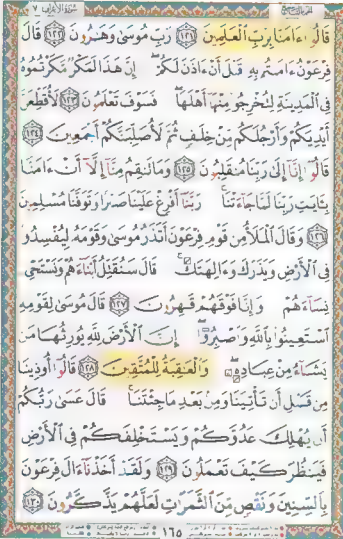 سورة الأعراف ٧
قَالُوٓا۟ ءَامَنَّا بِرَبِّ ٱلْعَـٰلَمِينَ ١٢١ رَبِّ مُوسَىٰ وَهَـٰرُونَ ١٢٢ قَالَ
فِرْعَوْنُ ءَامَنتُم بِهِۦ قَبْلَ أَنْ ءَاذَنَ لَكُمْ إِنَّ هَـٰذَا لَمَكْرٌ مَّكَرْتُمُوهُ
فِى ٱلْمَدِينَةِ لِتُخْرِجُوا۟ مِنْهَآ أَهْلَهَا فَسَوْفَ تَعْلَمُونَ ١٢٣ لَأُقَطِّعَنَّ
أَيْدِيَكُمْ وَأَرْجُلَكُم مِّنْ خِلَـٰفٍ ثُمَّ لَأُصَلِّبَنَّكُمْ أَجْمَعِينَ ١٢٤
قَالُوٓا۟ إِنَّآ إِلَىٰ رَبِّنَا مُنقَلِبُونَ ١٢٥ وَمَا تَنقِمُ مِنَّآ إِلَّآ أَنْ ءَامَنَّا
بِـَٔايَـٰتِ رَبِّنَا لَمَّا جَآءَتْنَا رَبَّنَآ أَفْرِغْ عَلَيْنَا صَبْرًا وَتَوَفَّنَا مُسْلِمِينَ
١٢٦ وَقَالَ ٱلْمَلَأُ مِن قَوْمِ فِرْعَوْنَ أَتَذَرُ مُوسَىٰ وَقَوْمَهُۥ لِيُفْسِدُوا۟
فِى ٱلْأَرْضِ وَيَذَرَكَ وَءَالِهَتَكَ قَالَ سَنُقَتِّلُ أَبْنَآءَهُمْ وَنَسْتَحْىِۦ
نِسَآءَهُمْ وَإِنَّا فَوْقَهُمْ قَـٰهِرُونَ ١٢٧ قَالَ مُوسَىٰ لِقَوْمِهِ
ٱسْتَعِينُوا۟ بِٱللَّهِ وَٱصْبِرُوٓا۟ إِنَّ ٱلْأَرْضَ لِلَّهِ يُورِثُهَا مَن
يَشَآءُ مِنْ عِبَادِهِۦ وَٱلْعَـٰقِبَةُ لِلْمُتَّقِينَ ١٢٨ قَالُوٓا۟ أُوذِينَا
مِن قَبْلِ أَن تَأْتِيَنَا وَمِنۢ بَعْدِ مَا جِئْتَنَا قَالَ عَسَىٰ رَبُّكُمْ
أَن يُهْلِكَ عَدُوَّكُمْ وَيَسْتَخْلِفَكُمْ فِى ٱلْأَرْضِ
فَيَنظُرَ كَيْفَ تَعْمَلُونَ ١٢٩ وَلَقَدْ أَخَذْنَآ ءَالَ فِرْعَوْنَ
بِٱلسِّنِينَ وَنَقْصٍ مِّنَ ٱلثَّمَرَٰتِ لَعَلَّهُمْ يَذَّكَّرُونَ ١٣٠
١٦٥